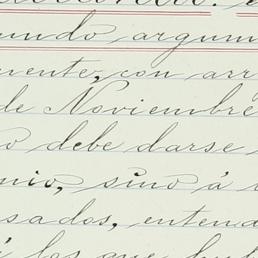 undo argum
uente, con arr
de Noviembre
o debe darse
nio, sinó á
sados, entend
á los que